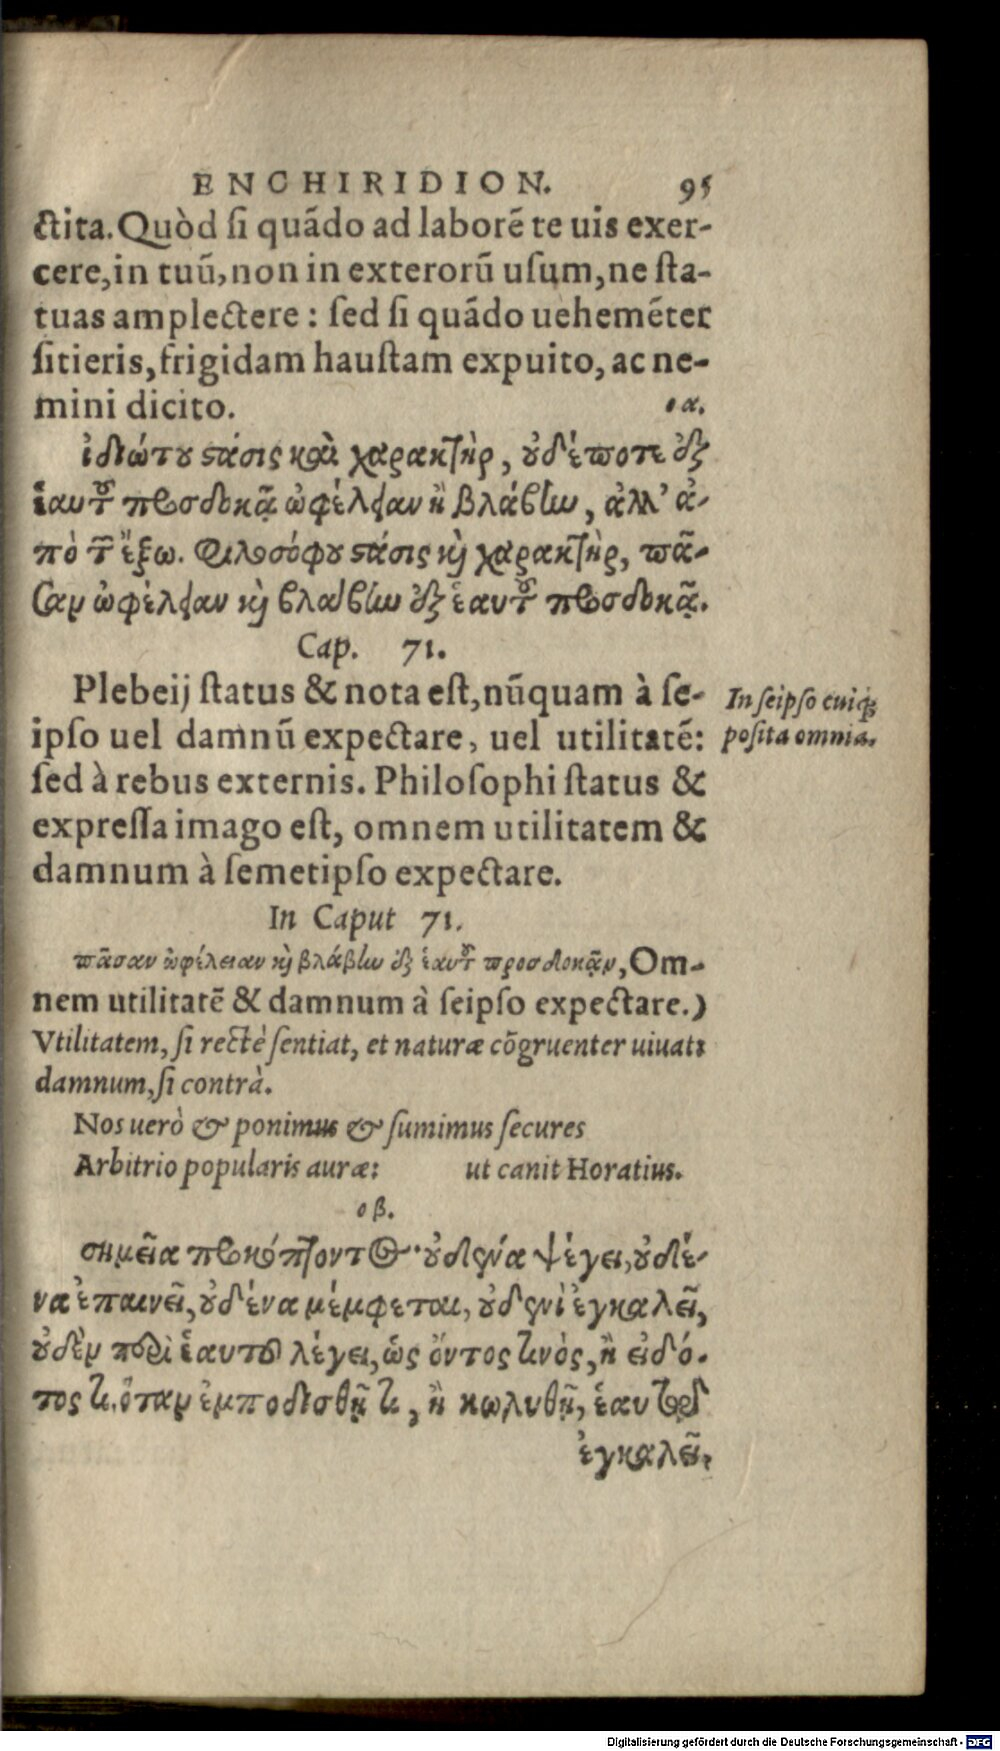 ENCHIRIDION. 95
ctita. Quòd si quãdo ad laborẽ te uis exer-
cere, in tuũ, non in exterorũ usum, ne sta-
tuas amplectere : sed si quãdo uehemẽter
sitieris, frigidam haustam expuito, ac ne-
mini dicito.
οα.
ἰδιώτου στάσις καὶ χαρακτὴρ, οὐδέποτε ἐξ
ἑαυτοῦ προσδοκᾷ ὠφέλειαν ἢ βλάβην, ἀλλ’ ἀ-
πὸ τῶν ἔξω. Φιλοσόφου στάσις καὶ χαρακτὴρ, πᾶ-
σαν ὠφέλειαν καὶ βλάβην ἐξ ἑαυτοῦ προσδοκᾷ.
Cap. 71.
Plebeij status & nota est, nũquam à se-
ipso uel damnũ expectare, uel utilitatẽ:
sed à rebus externis. Philosophi status &
expressa imago est, omnem utilitatem &
damnum à semetipso expectare.
In seipso cuiq;
posita omnia.
In Caput 71.
πᾶσαν ὠφέλειαν καὶ βλάβην ἐξ ἑαυτοῦ προσδοκᾷν, Om-
nem utilitatẽ & damnum à seipso expectare.)
Vtilitatem, si rectè sentiat, et naturæ cõgruenter uiuat:
damnum, si contrà.
Nos uerò & ponimus & sumimus secures
Arbitrio popularis auræ: ut canit Horatius.
οβ.
σημεῖα προκόπτοντος· οὐδένα ψέγει, οὐδέ-
να ἐπαινεῖ, οὐδένα μέμφεται, οὐδενὶ ἐγκαλεῖ,
οὐδὲν περὶ ἑαυτοῦ λέγει, ὡς ὄντος τινὸς, ἢ εἰδό-
τος τι. ὅταν ἐμποδισθῇ τι, ἢ κωλυθῇ, ἑαυτῷ
ἐγκαλεῖ,
Digitalisierung gefördert durch die Deutsche Forschungsgemeinschaft - DFG